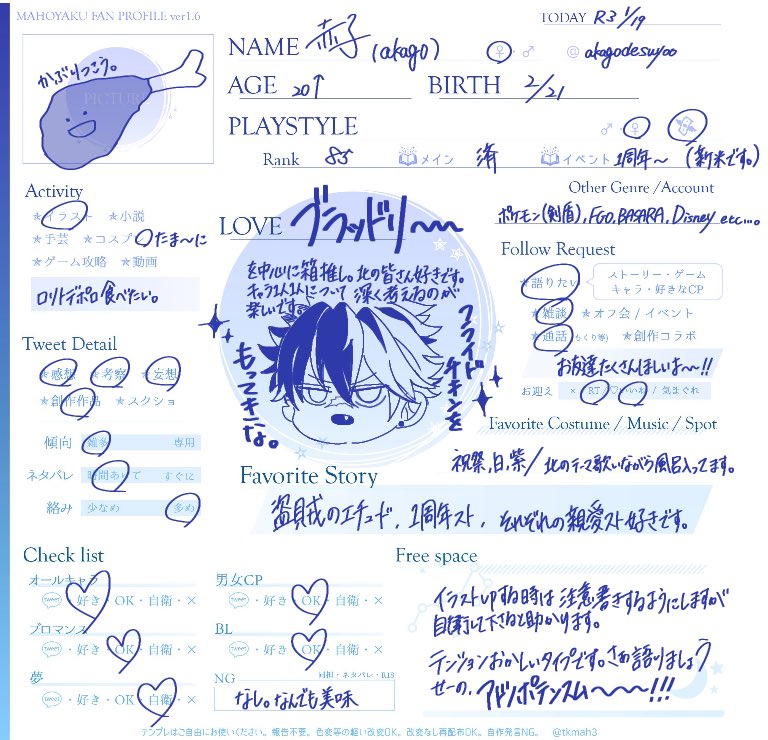 MAHOYAKU FAN PROFILE ver1.6
TODAY R3 1/19
かぶりつこう。
PICTURE
NAME 赤子(akago) ♀・♂ @akagodesuyoo
AGE 20↑ BIRTH 2/21
PLAYSTYLE ♂・♀
Rank 85 メイン 済 イベント 1周年〜(新米です。)
Activity
★イラスト ★小説
★手芸 ★コスプレ たま〜に
★ゲーム攻略 ★動画
ロリトデポロ食べたい。
LOVE ブラッドリ〜〜
を中心に箱推し。北の皆さん好きです。
キャラ1人1人について深く考えたのが
楽しいです。
フライドチキンを
もってきな。
Other Genre /Account
ポケモン(剣盾),FGO,BASARA,Disney etc...。
Follow Request
★語りたい ストーリー・ゲーム
キャラ・好きなCP
★雑談 ★オフ会 / イベント
★通話(もくり等) ★創作コラボ
お友達たくさんほしいな〜!!
お迎え × RT / ♡いいね / 気まぐれ
Tweet Detail
★感想 ★考察 ★妄想
★創作作品 ★スクショ
傾向 雑多 専用
ネタバレ 時間あけて すぐに
絡み 少なめ 多め
Favorite Costume / Music / Spot
祝祭,白,紫/北のテーマ歌いながら風呂入ってます。
Favorite Story
盗賊のエチュード,1周年スト,それぞれの親愛スト好きです。
Check list
オールキャラ
TWEET・好き・OK・自衛・×
ブロマンス
TWEET・好き・OK・自衛・×
夢
TWEET・好き・OK・自衛・×
男女CP
TWEET・好き・OK・自衛・×
BL
TWEET・好き・OK・自衛・×
NG 同担・ネタバレ・R18
なし。なんでも美味
Free space
イラストupする時は注意書きするようにしますが
自衛して下さると助かります。
テンションおかしいタイプです。さぁ語りましょう
せーの、アドノポテンスム〜〜〜!!!
テンプレはご自由にお使いください。報告不要。色変等の軽い改変OK。改変なし再配布OK。自作発言NG。 @tkmah3